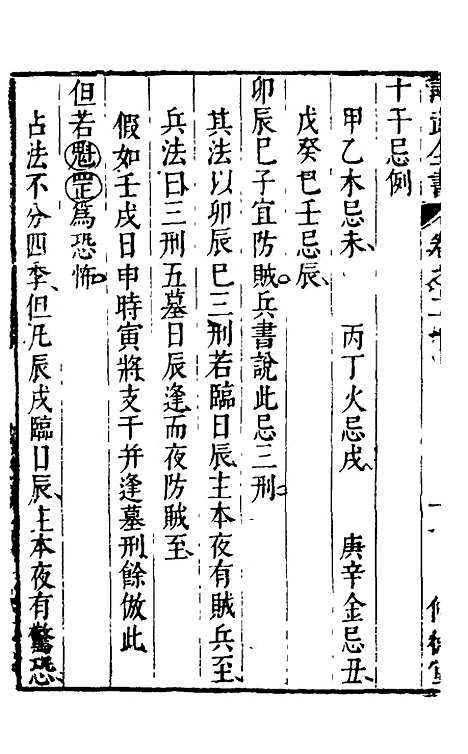 十干忌例
甲乙木忌未 丙丁火忌戌 庚辛金忌丑
戊癸巳壬忌辰
卯辰巳子宜防賊兵書說此忌三刑
其法以卯辰巳三刑若臨日辰主本夜有賊兵至
兵法曰三刑五墓日辰逢而夜防賊至
假如壬戌日申時寅將支干并逢墓刑餘倣此
但若魁罡爲恐怖
占法不分四季但凡辰戌臨日辰主本夜有驚恐